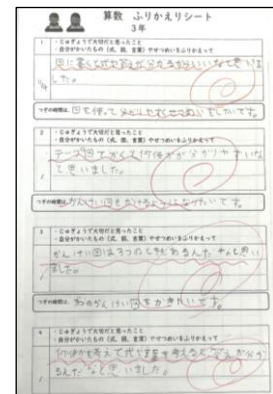 算数 ふりかえりシート
3年
1
・じゅぎょうで大切だと思ったこと
・自分がかいたもの(式、図、言葉)やせつめいをふりかえって
図に書くと式や答えが分かるからいいなと思いま
した。
つぎの時間は、図を使って分かりやすくせつめいをしたいです。
2
・じゅぎょうで大切だと思ったこと
・自分がかいたもの(式、図、言葉)やせつめいをふりかえって
テープ図でかくと何倍かが分かりやすいな
と思いました。
つぎの時間は、かんけい図をかけるようになりたいです。
3
・じゅぎょうで大切だと思ったこと
・自分がかいたもの(式、図、言葉)やせつめいをふりかえって
かんけい図は3つのときもあるんだなと思い
ました。
つぎの時間は、かんけい図をかきたいです。
4
・じゅぎょうで大切だと思ったこと
・自分がかいたもの(式、図、言葉)やせつめいをふりかえって
何倍かを考えて式や を考えると答えが分か
るんだなと思いました。